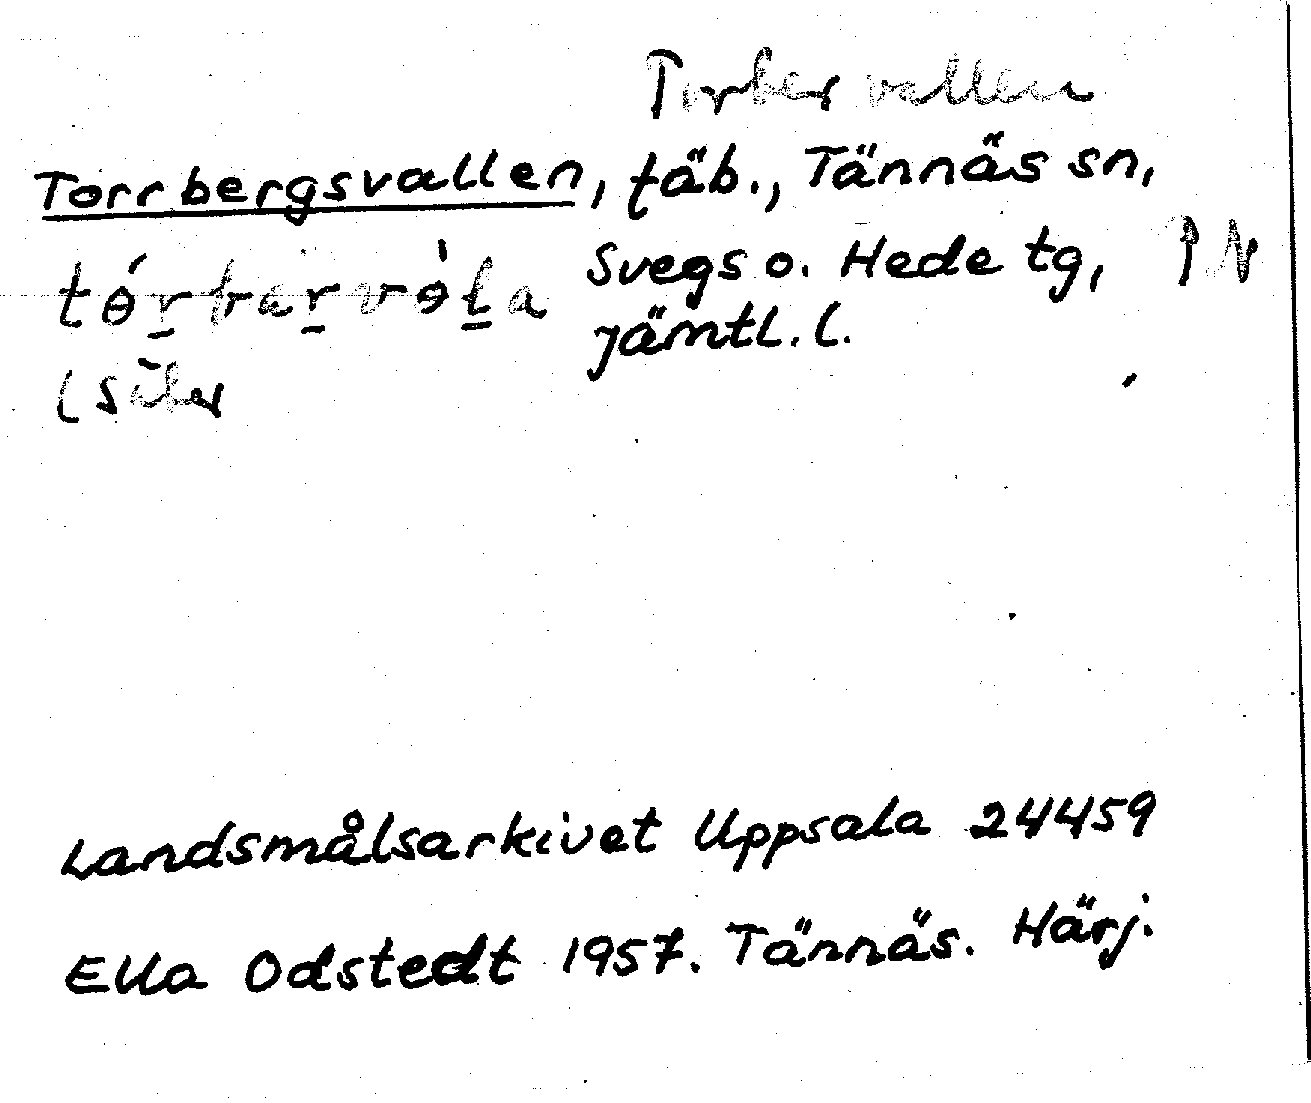 Torber vallen
Torrbergsvallen, fäb., Tännäs sn,
Svegs o. Hede tg,
Jämtl. l.
Landsmålsarkivet Uppsala 24459
Ella Odstedt 1957. Tännäs. Härj.